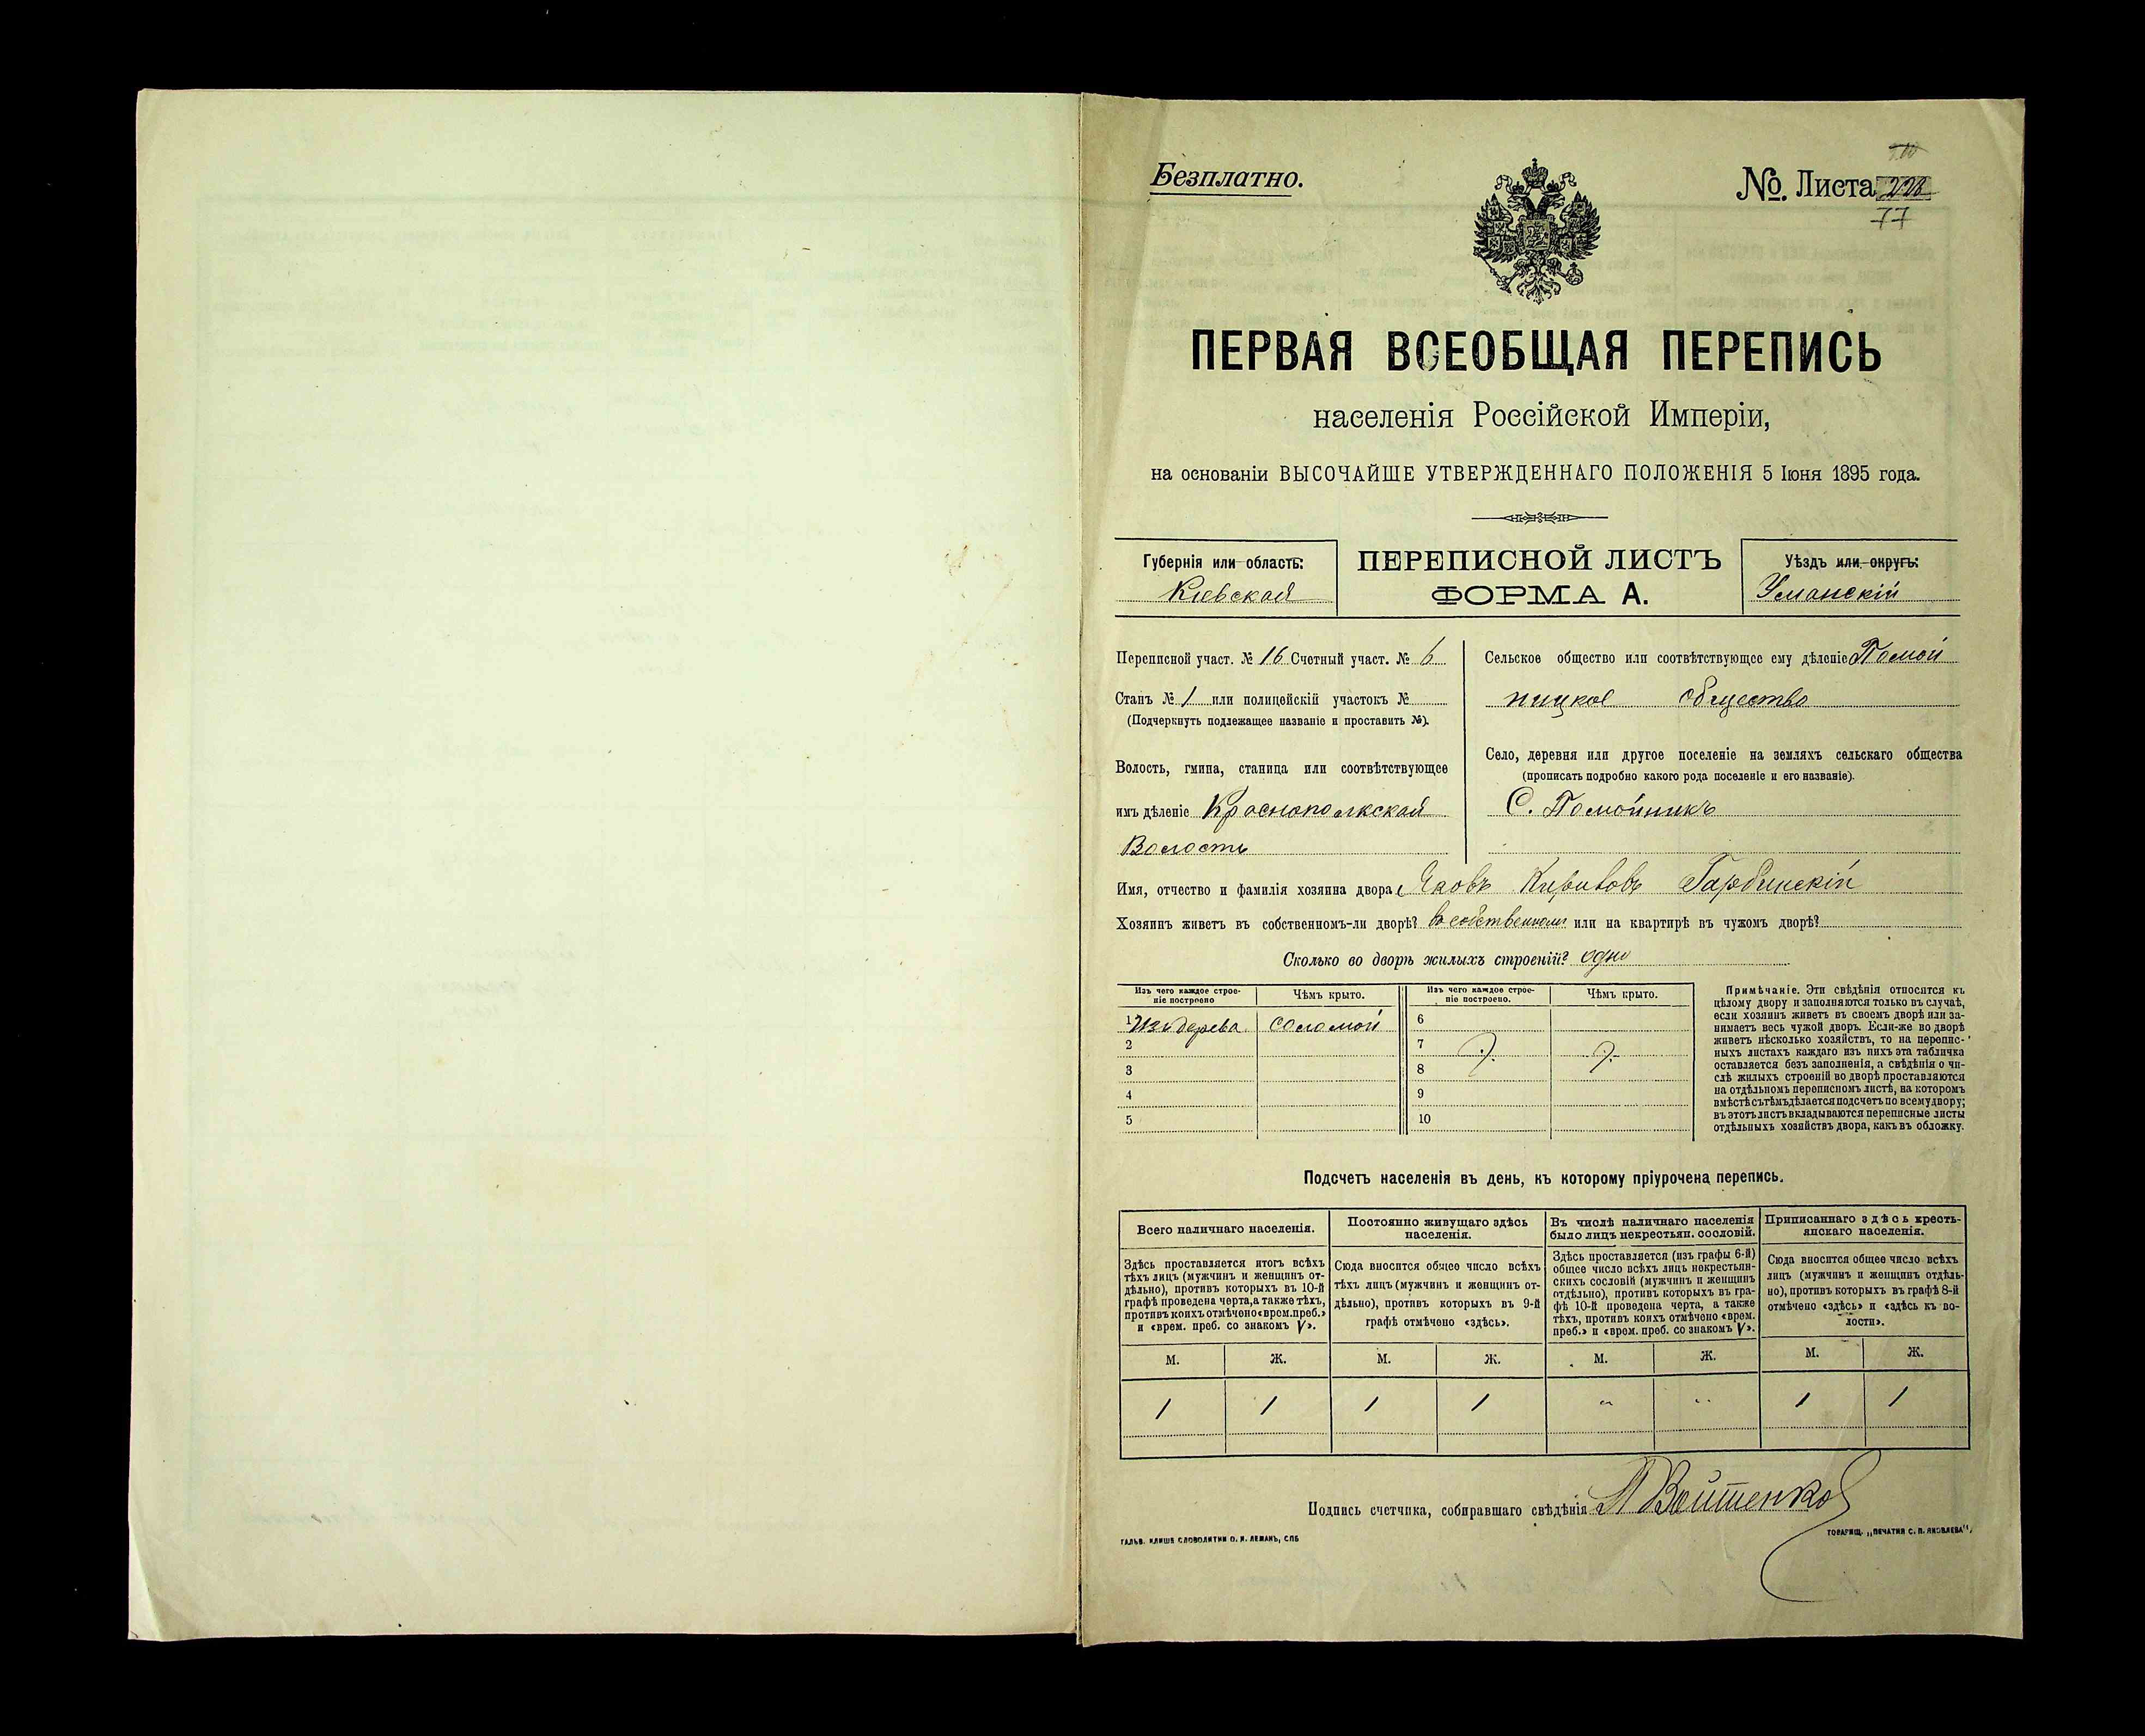 Безплатно.
№. Листа 228
77
ПЕРВАЯ ВСЕОБЩАЯ ПЕРЕПИСЬ
населенія Россійской Имперіи,
на основаніи ВЫСОЧАЙШЕ УТВЕРЖДЕННАГО ПОЛОЖЕНІЯ 5 Іюня 1895 года.
Губернія или область:
Кіевская
ПЕРЕПИСНОЙ ЛИСТЪ
ФОРМА А.
Уѣздъ или округъ:
Уманскій
Переписной участ. № 16 Счетный участ. № 6
Станъ № 1 или полицейскій участокъ №
(Подчеркнуть подлежащее названіе и проставить №).
Волость, гмина, станица или соотвѣтствующее
имъ дѣленіе Краснополкская
Волость
Сельское общество или соотвѣтствующее ему дѣленіе Помой
ницкое общество
Село, деревня или другое поселеніе на земляхъ сельскаго общества
(прописать подробно какого рода поселеніе и его названіе).
С. Помойникъ
Имя, отчество и фамилія хозяина двора Яковъ Гарбинскій
Хозяинъ живетъ въ собственномъ-ли дворѣ? въ собственномъ или на квартирѣ въ чужомъ дворѣ?
Сколько во дворѣ жилыхъ строеній? одно
Изъ чего каждое строе-
ніе построено
Чѣмъ крыто.
Изъ чего каждое строе-
ніе построено.
Чѣмъ крыто.
1 Изъ дерева соломой
2
3
4
5
6
7
8
9
10
Примѣчаніе. Эти свѣдѣнія относятся къ
цѣлому двору и заполняются только въ случаѣ,
если хозяинъ живетъ въ своемъ дворѣ или за-
нимаетъ весь чужой дворъ. Если-же во дворѣ
живетъ нѣсколько хозяйствъ, то на перепис-
ныхъ листахъ каждаго изъ нихъ эта табличка
оставляется безъ заполненія, а свѣдѣнія о чи-
слѣ жилыхъ строеній во дворѣ проставляются
на отдѣльномъ переписномъ листѣ, на которомъ
вмѣстѣ съ тѣмъ дѣлается подсчетъ по всему двору;
въ этотъ листъ вкладываются переписные листы
отдѣльныхъ хозяйствъ двора, какъ въ обложку.
Подсчетъ населенія въ день, къ которому пріурочена перепись.
Всего наличнаго населенія.
Здѣсь проставляется итогъ всѣхъ
тѣхъ лицъ (мужчинъ и женщинъ от-
дѣльно), противъ которыхъ въ 10-й
графѣ проведена черта, а также тѣхъ,
противъ коихъ отмѣчено «врем. преб.»
и «врем. преб. со знакомъ V».
Постоянно живущаго здѣсь
населенія.
Сюда вносится общее число всѣхъ
тѣхъ лицъ (мужчинъ и женщинъ от-
дѣльно), противъ которыхъ въ 9-й
графѣ отмѣчено «здѣсь».
Въ числѣ наличнаго населенія
было лицъ некрестьян. сословій.
Здѣсь проставляется (изъ графы 6-й)
общее число всѣхъ лицъ некрестьян-
скихъ сословій (мужчинъ и женщинъ
отдѣльно), противъ которыхъ въ гра-
фѣ 10-й проведена черта, а также
тѣхъ, противъ коихъ отмѣчено «врем.
преб.» и «врем. преб. со знакомъ V».
Приписаннаго здѣсь кресть-
янскаго населенія.
Сюда вносится общее число всѣхъ
лицъ (мужчинъ и женщинъ отдѣль-
но), противъ которыхъ въ графѣ 8-й
отмѣчено «здѣсь» и «здѣсь къ во-
лости».
М. Ж. М. Ж. М. Ж. М. Ж.
1 1 1 1 " " 1 1
Подпись счетчика, собиравшаго свѣдѣнія Войтенко
ГАЛЬВ. КЛИШЕ СЛОВОЛИТНИ О. И. ЛЕМАНЪ, СПБ
ТОВАРИЩ. „ПЕЧАТНЯ С. П. ЯКОВЛЕВА".